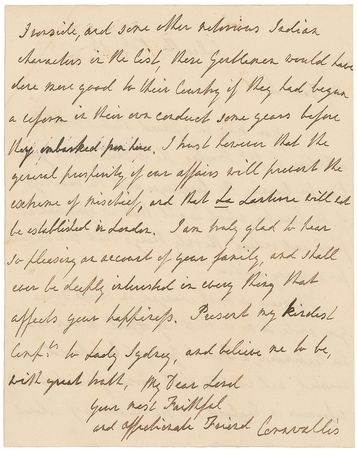 Ironside, and some other notorious Indian
characters in the list, these Gentlemen would have
done more good to their Country if they had began
a reform in their own conduct some years before
they embarked from hence. I trust however that the
general prosperity of our affairs will prevent the
extreme of mischief, and that La Lanterne will not
be established in London. I am truly glad to hear
so pleasing an account of your family, and shall
ever be deeply interested in every thing that
affects your happiness. Present my kindest
Comp.ts to Lady Sydney, and believe me to be,
with great truth, My Dear Lord
Your most Faithful
and affectionate Friend Cornwallis